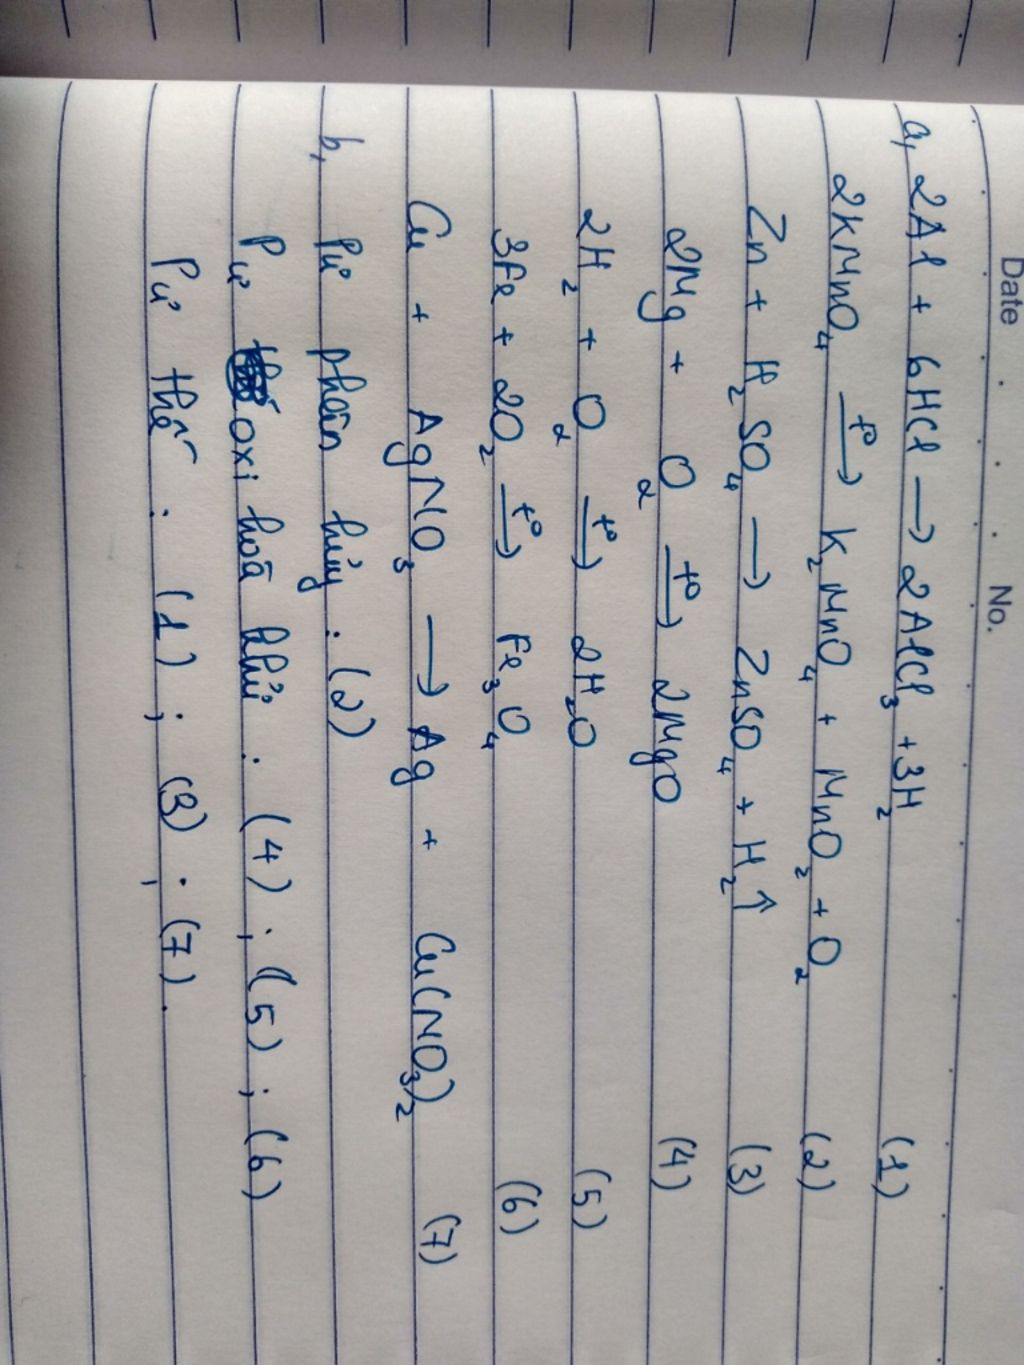 Date No.
a, 2Al + 6HCl → 2AlCl₃ + 3H₂ (1)
2KMnO₄ —t°→ K₂MnO₄ + MnO₂ + O₂ (2)
Zn + H₂SO₄ → ZnSO₄ + H₂↑ (3)
2Mg + O₂ —t°→ 2MgO (4)
2H₂ + O₂ —t°→ 2H₂O (5)
3Fe + 2O₂ —t°→ Fe₃O₄ (6)
Cu + AgNO₃ → Ag + Cu(NO₃)₂ (7)
b, Pư phân hủy : (2)
Pư oxi hoá khử : (4) ; (5) ; (6)
Pư thế : (1) ; (3) ; (7).